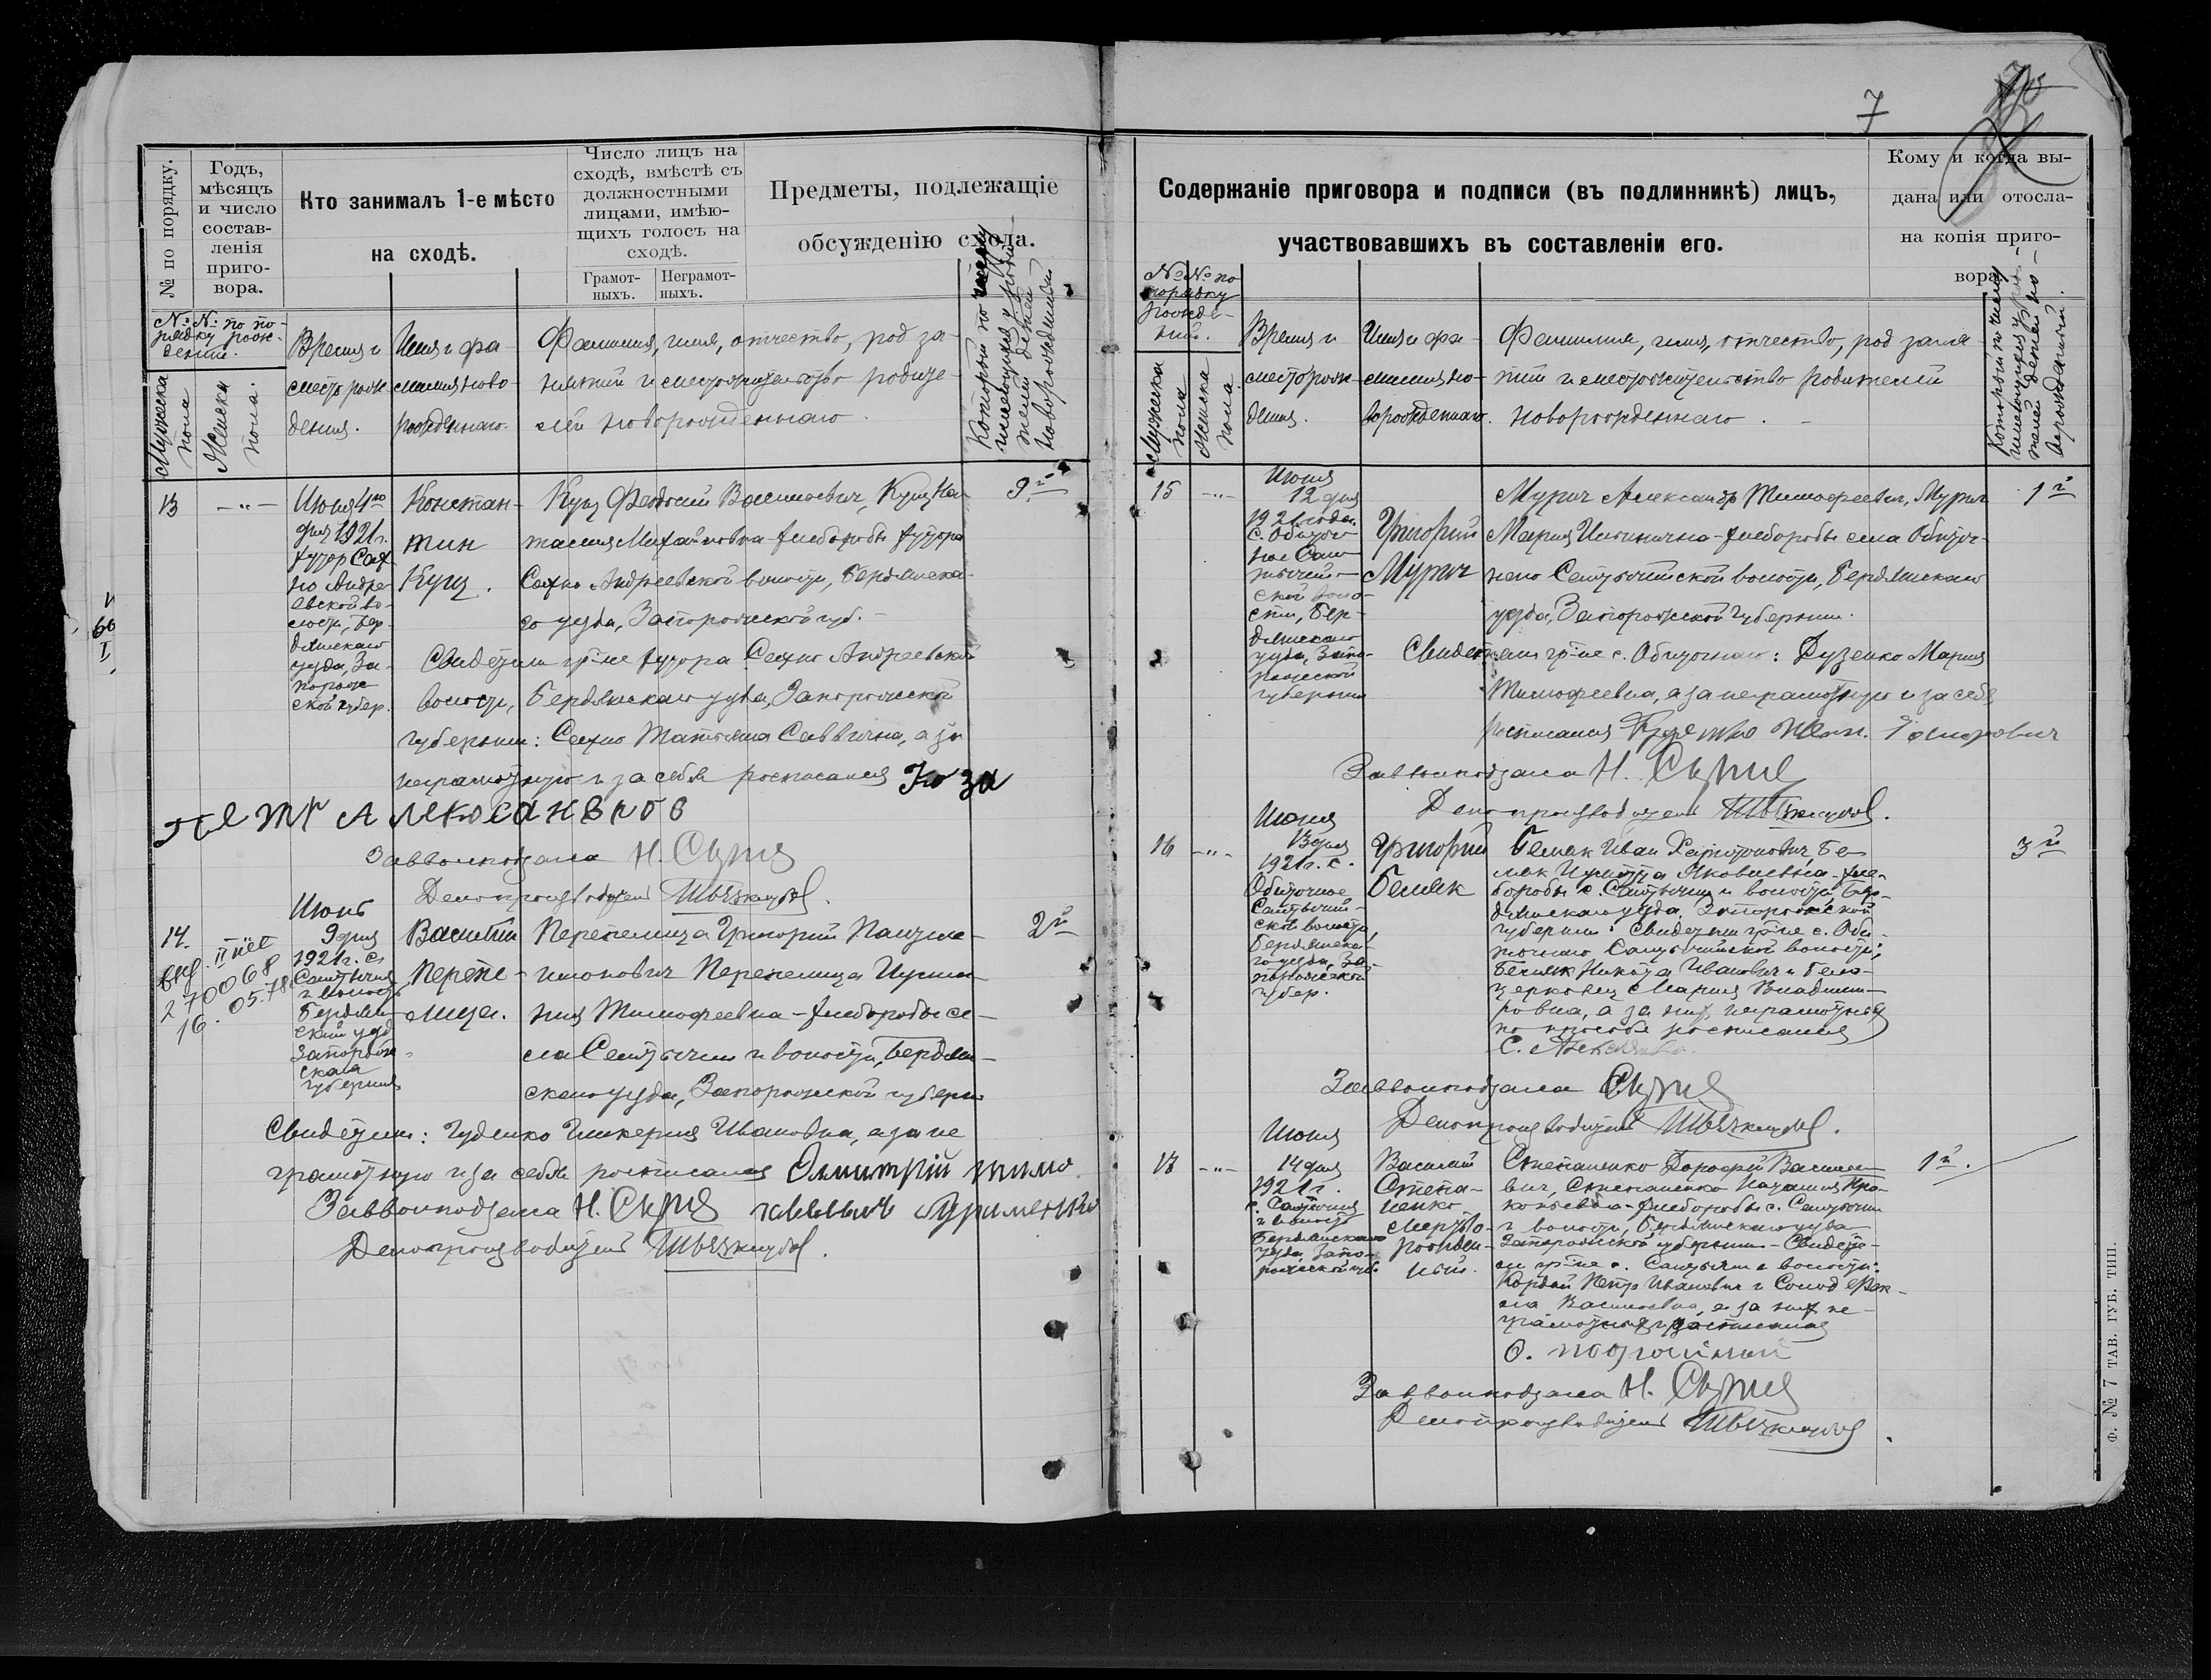 7
№ по порядку.
Годъ, мѣсяцъ и число состав-ленія приго-вора.
Кто занималъ 1-е мѣсто
на сходѣ.
Число лицъ на
сходѣ, вмѣстѣ съ
должностными
лицами, имѣю-
щихъ голосъ на
сходѣ.
Грамот-
ныхъ.
Неграмот-
ныхъ.
Предметы, подлежащіе
обсужденію схода.
№ № по по-
рядку рож-
дений.
Мужеска пола
Женска пола.
Время и
место рож
дения.
Имя и фа-
милия ново-
рожденнаго.
Фамилия, имя, отчество, род за-
нятий и местожительство родите-
лей новорожденнаго.
Который по числу
имеющихся у роди-
телей детей
новорожденный
13
— „ —
Июня 4го
дня 1921г.
хутор Сах
но Андре-
евской во-
лости, Бер-
дянскаго
уезда, За-
порож
ской губер.
Констан-
тин
Куц.
Куц Феодосий Васильевич, Куц На-
талия Михайловна - хлеборобы хутора
Сахно Андреевской волости, Бердянска-
го уезда, Запорожской губ. -
9й
Свидетели гр-не хутора Сахно Андреевской
волости, Бердянскаго уезда, Запорожской
губернии: Сахно Татьяна Саввична, а за
неграмотную и за себя росписался Коза
Петр Алекосанвров
Завволподзага Н. Скрпя
Делопроизводитель
14.
II
270068
16. 05.78
Июнь
9 дня
1921г. с.
и волость
Бердян-
ский уезд
Запорож-
ская
губерния
Василий
Перепе-
лица.
Перепелица Григорий
Перепелица
Тимофеевна - хлеборобы се-
ла и волости, Бердян-
скаго уезда, Запорожской губерн
2й
Свидетели: Гуденко Гликерия Ивановна, а за не
грамотную и за себя росписался Дмитрій
Завволподзага Н. Скрпя
Делопроизводитель
Содержаніе приговора и подписи (въ подлинникѣ) лицъ,
участвовавшихъ въ составленіи его.
Кому и когда вы-
дана или отосла-
на копія приго-
вора.
№ № по
порядку
рожде-
ний.
Мужеска пола
Женска пола.
Время и
место рож-
дения.
Имя и фа-
милия но-
ворожденнаго.
Фамилия, имя, отчество, род заня
тий и местожительство родителей
новорожденнаго. -
Который по числу
имеющихся у роди-
телей детей но-
ворожденный.
15
— „ —
Июня
12 дня
1921 года.
с. Обиточ-
ное
ской воло-
сти, Бер-
дянскаго
уезда, Запо-
рожской
губернии
Григорий
Мурич
Мурич Александр Тимофеевич, Мурич
Мария - хлеборобы села Обиточ-
наго волости, Бердянскаго
уезда, Запорожской губернии.
1й
Свидетели гр-не с. Обиточнаго: Дузенко Мария
Тимофеевна, а за неграмотную и за себя
росписался
Завволподзага Н. Скрпя
Делопроизводитель
16
— „ —
Июня
13 дня
1921г. с.
Обиточное
ской волости,
Бердянска-
го уезда, За-
порожской
губер.
Григорий
Беляк
Беляк Иван Харитонович, Бе-
ляк Яковлевна - хле-
боробы с. и волости, Бер-
дянскаго уезда, Запорожской
губернии. Свидетели гр-не с. Оби-
точнаго волости;
Беляк Никита Иванович и Бело-
церковец Мария Владими-
ровна, а за них, неграмотных
по просьбе росписался
3й
Завволподзага Скрпя
Делопроизводитель
17
— „ —
Июня
14 дня
1921г.
и волость
Бердянскаго
уезда Запо-
рожской губ.
Василий
Степа-
ненко
мертво-
рожден-
ный.
Степаненко Дорофей Василье-
вич, Степаненко Наталия Про-
кофьевна - хлеборобы с.
и волости, Бердянскаго уезда
Запорожской губернии - Свидете-
ли гр-не с. и волости:
Кордай Петр Иванович и Солод Фек-
ла Васильевна, а за них не-
грамотных росписался
1й.
Завволподзага Н. Скрпя
Делопроизводитель
Ф. № 7 ТАВ. ГУБ. ТИП.